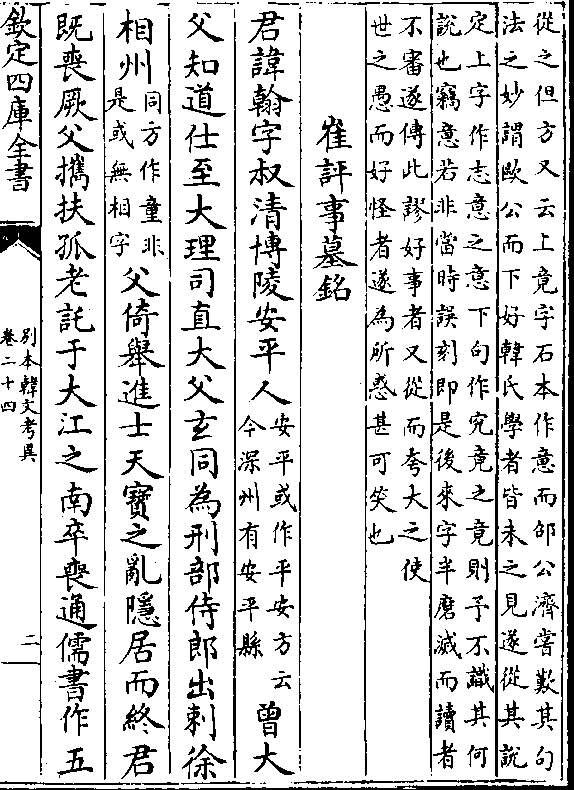 從之但方又云上竟字石本作意而邵公濟嘗歎其句
法之妙謂歐公而下好韓氏學者皆未之見遂從其說
定上字作志意之意下句作究竟之竟則予不識其何
說也竊意若非當時誤刻即是後來字半磨滅而讀者
不審遂傳此謬好事者又從而夸大之使
世之愚而好怪者遂為所惑甚可笑也
崔評事墓銘
君諱翰字叔清博陵安平人安平或作平安方云今深州有安平縣曾大
父知道仕至大理司直大父玄同為刑部侍郎出刺徐
相州同方作童非是或無相字父倚舉進士天寶之亂隱居而終君
既喪厥父攜扶孤老託于大江之南卒喪通儒書作五
欽定四庫全書
別本韓文考異
卷二十四
二